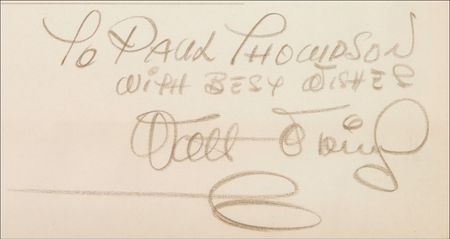 To Paul Thompson
with Best Wishes
Walt Disney